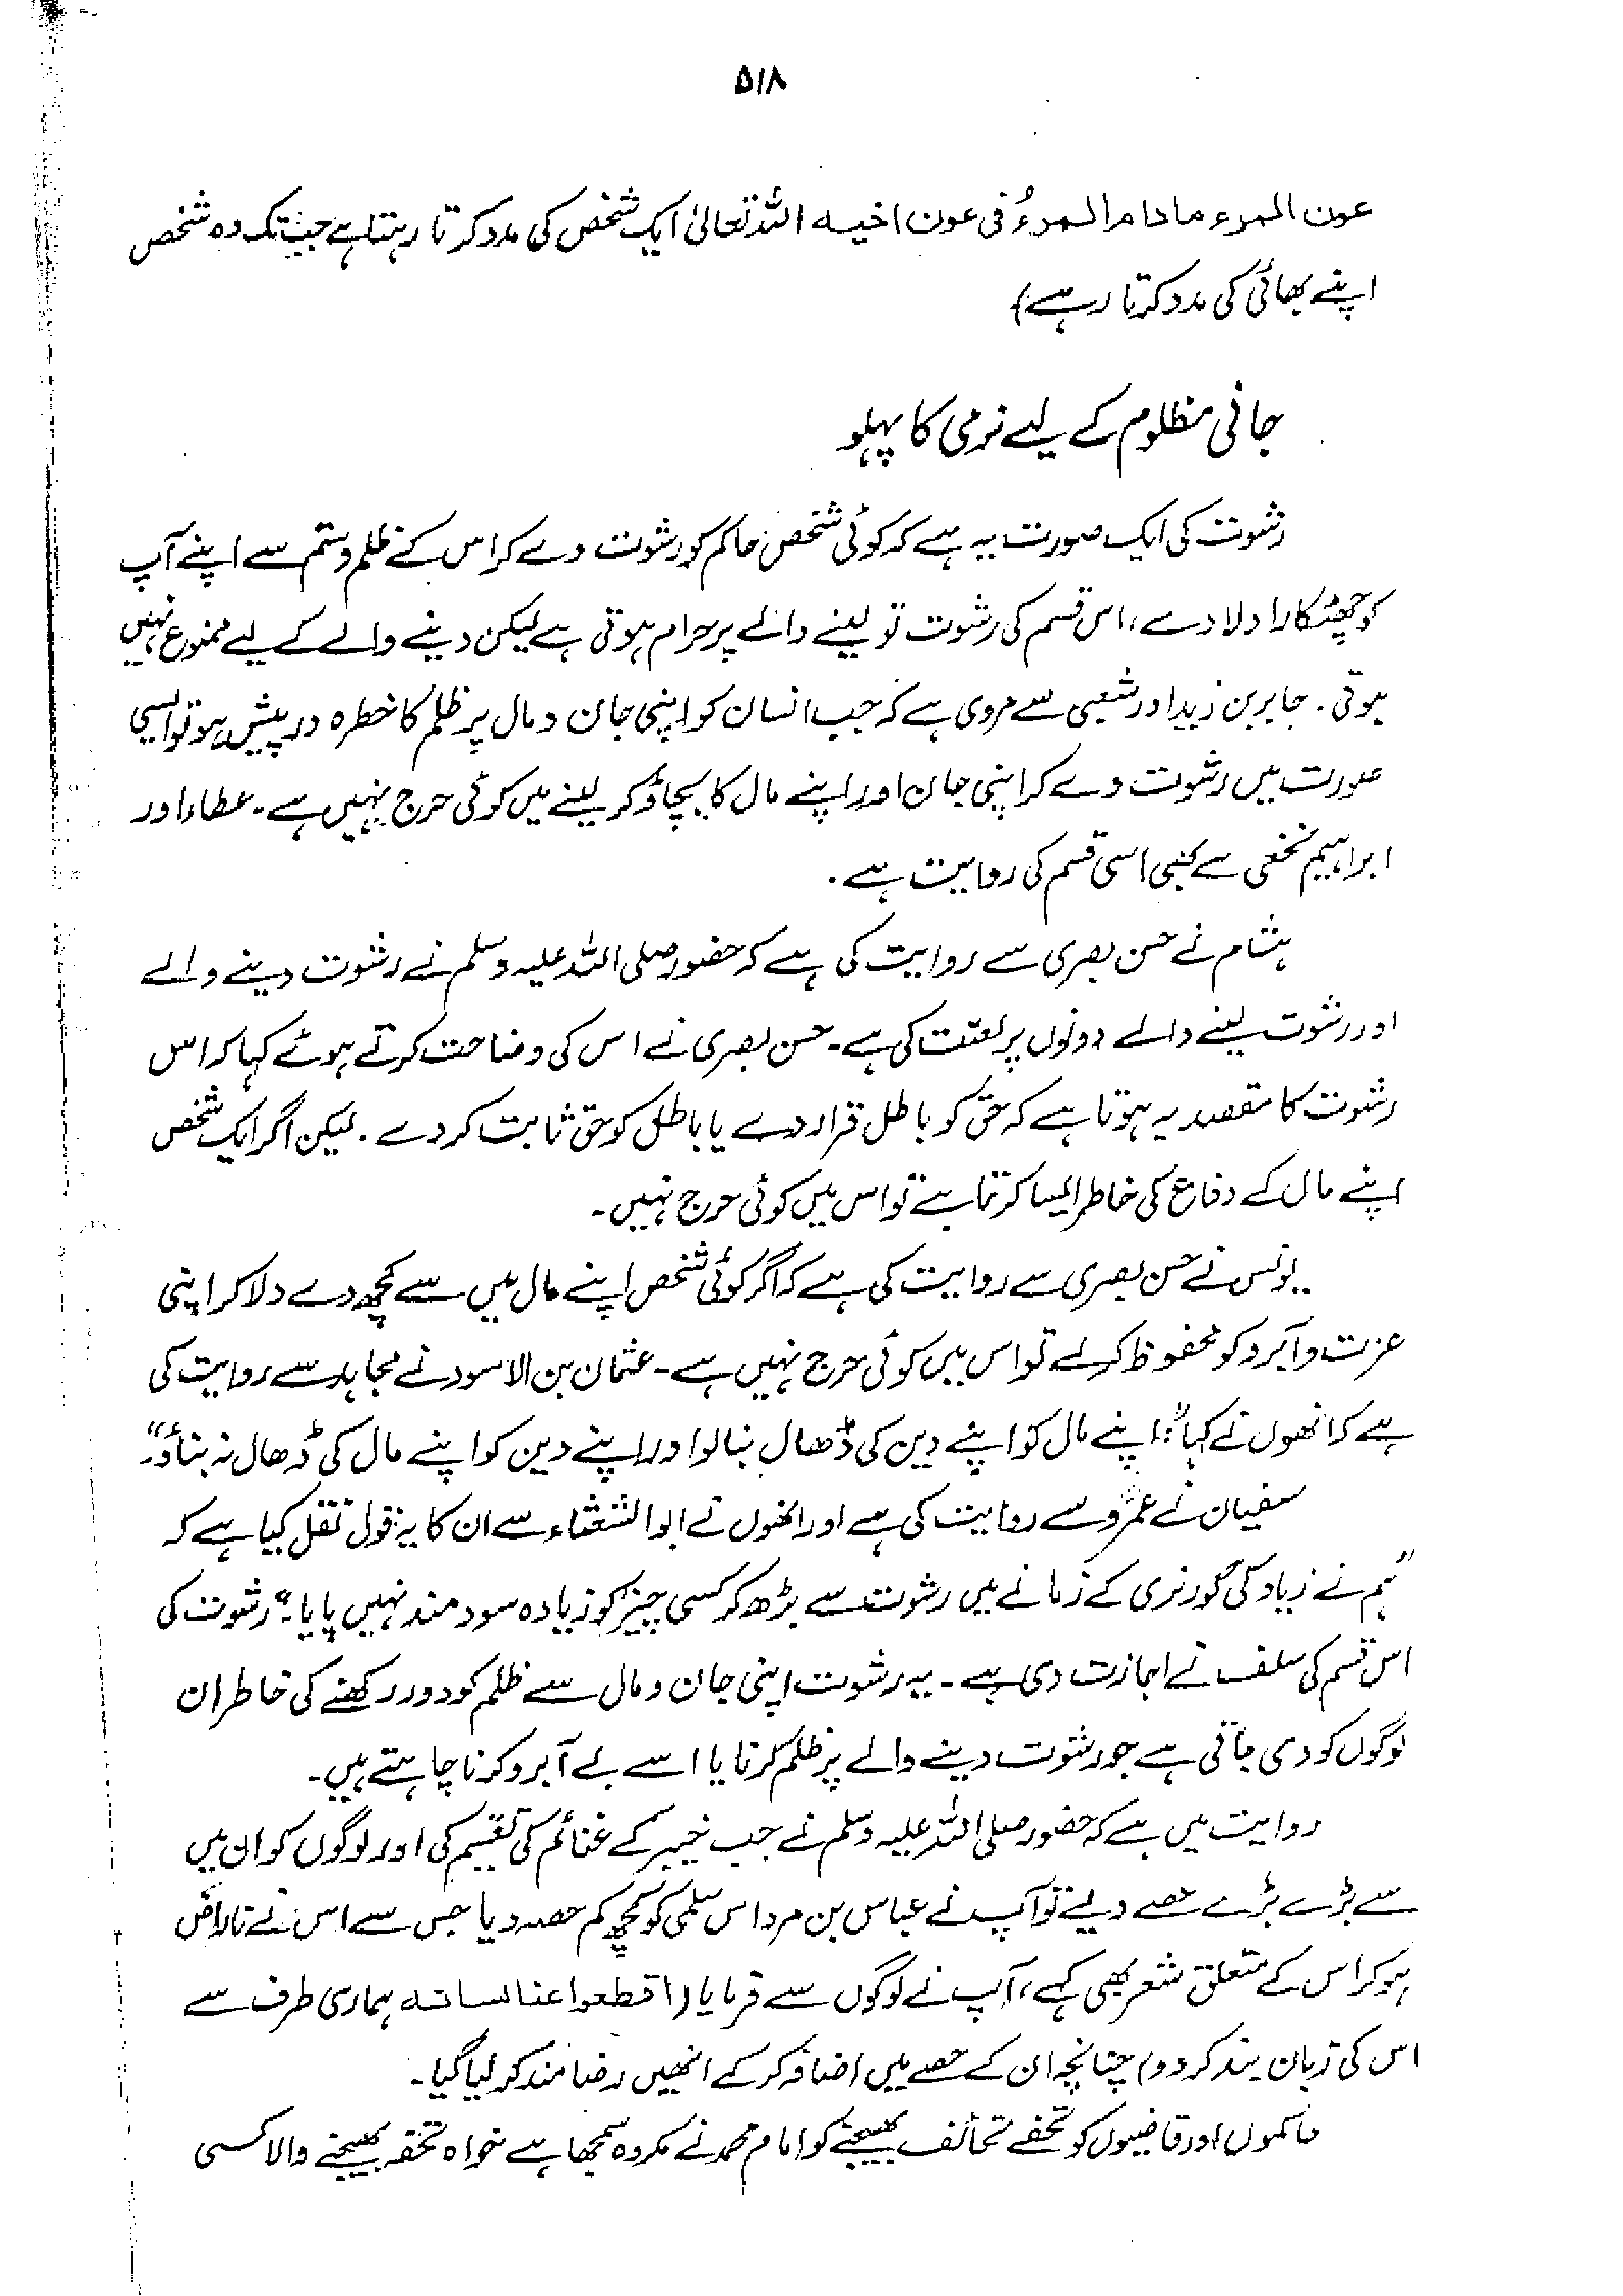 ۵۱۸
عون المرء مادام المرءُ فی عون اخیہ اللہ تعالیٰ ایک شخص کی مدد کرتا رہتا ہے جب تک وہ شخص
اپنے بھائی کی مدد کرتا رہے)
جانی مظلوم کے لیے نرمی کا پہلو
رشوت کی ایک صورت یہ ہے کہ کوئی شخص حاکم کو رشوت دے کر اس کے ظلم و ستم سے اپنے آپ
کو چھٹکارا دلا دے، اس قسم کی رشوت تو لینے والے پر حرام ہوتی ہے لیکن دینے والے کے لیے ممنوع نہیں
ہوتی۔ جابر بن زید اور شعبی سے مروی ہے کہ جب انسان کو اپنی جان و مال پر ظلم کا خطرہ درپیش ہو تو ایسی
صورت میں رشوت دے کر اپنی جان اور اپنے مال کا بچاؤ کر لینے میں کوئی حرج نہیں ہے۔ عطاء اور
ابراہیم نخعی سے بھی اسی قسم کی روایت ہے۔
ہشام نے حسن بصری سے روایت کی ہے کہ حضور صلی اللہ علیہ وسلم نے رشوت دینے والے
اور رشوت لینے والے دونوں پر لعنت کی ہے۔ حسن بصری نے اس کی وضاحت کرتے ہوئے کہا کہ اس
رشوت کا مقصد یہ ہوتا ہے کہ حق کو باطل قرار دے یا باطل کو حق ثابت کر دے۔ لیکن اگر ایک شخص
اپنے مال کے دفاع کی خاطر ایسا کرتا ہے تو اس میں کوئی حرج نہیں۔
یونس نے حسن بصری سے روایت کی ہے کہ اگر کوئی شخص اپنے مال میں سے کچھ دے دلا کر اپنی
عزت و آبرو کو محفوظ کر لے تو اس میں کوئی حرج نہیں ہے۔ عثمان بن الاسود نے مجاہد سے روایت کی
ہے کہ انھوں نے کہا: "اپنے مال کو اپنے دین کی ڈھال بنا لو اور اپنے دین کو اپنے مال کی ڈھال نہ بناؤ"۔
سفیان نے عمرو سے روایت کی ہے اور انھوں نے ابوالشعثاء سے ان کا یہ قول نقل کیا ہے کہ
"ہم نے زیاد کی گورنری کے زمانے میں رشوت سے بڑھ کر کسی چیز کو زیادہ سود مند نہیں پایا"۔ رشوت کی
اس قسم کی سلف نے اجازت دی ہے۔ یہ رشوت اپنی جان و مال سے ظلم کو دور رکھنے کی خاطر ان
لوگوں کو دی جاتی ہے جو رشوت دینے والے پر ظلم کرنا یا اسے بے آبرو کرنا چاہتے ہیں۔
روایت میں ہے کہ حضور صلی اللہ علیہ وسلم نے جب خیبر کے غنائم کی تقسیم کی اور لوگوں کو ان میں
سے بڑے بڑے حصے دیے تو آپ نے عباس بن مرداس سلمی کو کچھ کم حصہ دیا جس سے اس نے ناراض
ہو کر اس کے متعلق شعر بھی کہے، آپ نے لوگوں سے فرمایا (اقطعوا عنا لسانہ ہماری طرف سے
اس کی زبان بند کر دو) چنانچہ ان کے حصے میں اضافہ کر کے انھیں رضامند کر لیا گیا۔
حاکموں اور قاضیوں کو تحفے تحائف بھیجنے کو امام محمد نے مکروہ سمجھا ہے خواہ تحفہ بھیجنے والا کسی